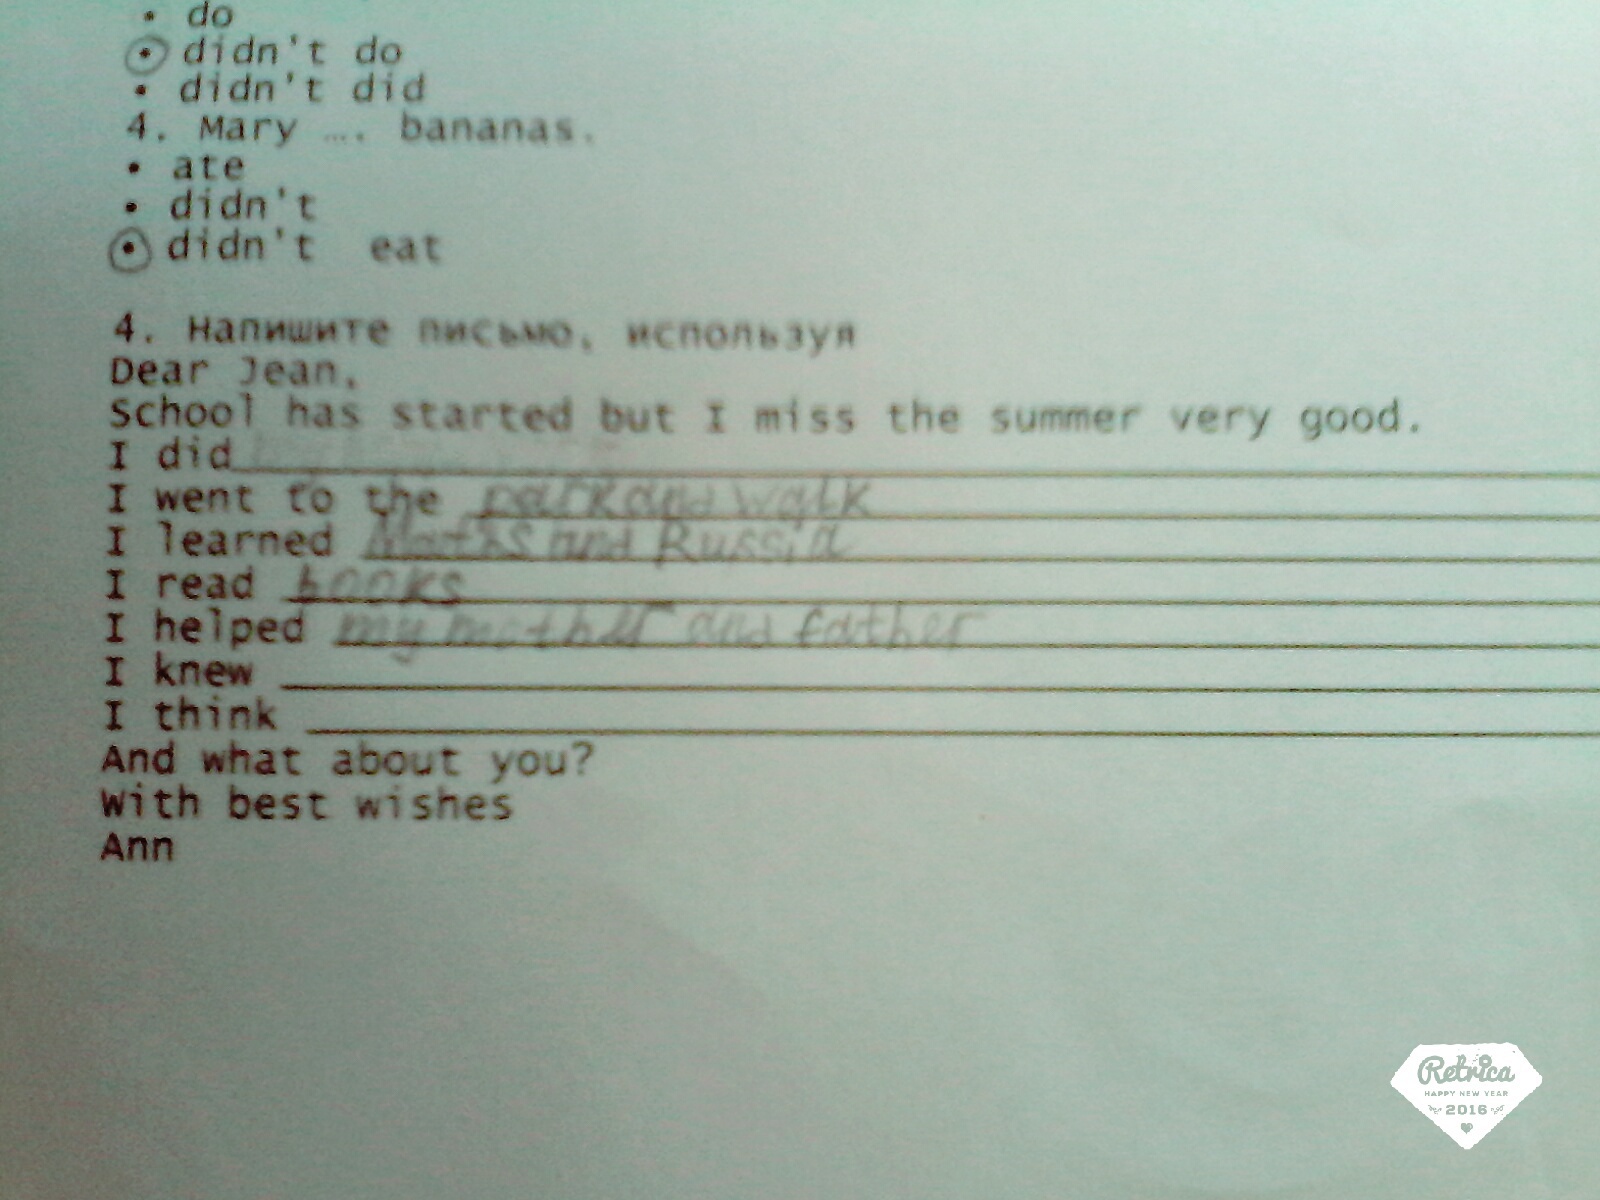 • do
• didn't do
• didn't did
4. Mary .... bananas.
• ate
• didn't
• didn't eat
4. Напишите письмо, используя
Dear Jean,
School has started but I miss the summer very good.
I did
I went to the park and walk
I learned Maths and Russia
I read books
I helped my mother and father
I knew
I think
And what about you?
With best wishes
Ann
Retrica
HAPPY NEW YEAR
2016